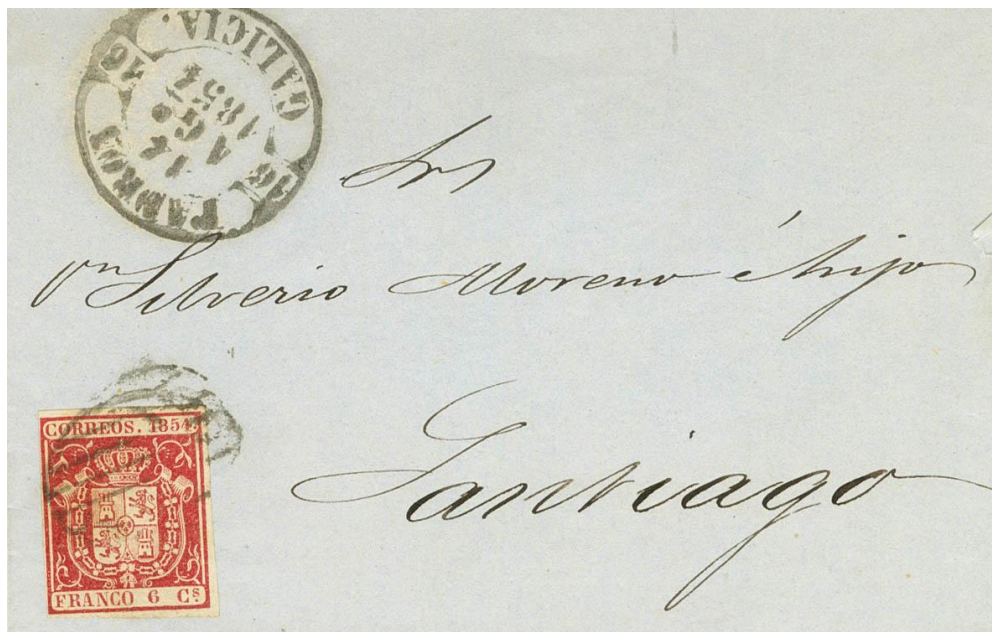 PADRON
16 16
14
AGo
1854
GALICIA.
Srs
Dn Silverio Moreno é hijo
Santiago
CORREOS. 1854
FRANCO 6 Cs